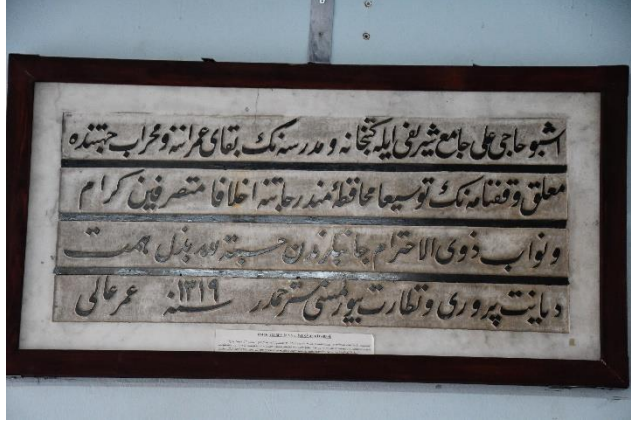 اشبو حاجی علی جامع شریفی ایله کتبخانه و مدرسه نك بقای عمراننه و محراب جهتنده
معلق وقفنامه نك توسیعا محافظۀ مندرجاتنه اخلافا متصرفین کرام
و نواب ذوی الاحترام جانبلرندن بذل همت
دیانت پروری و نظارت بیورلمسی مسترحمدر سنه ١٣١٩ عمر عالی